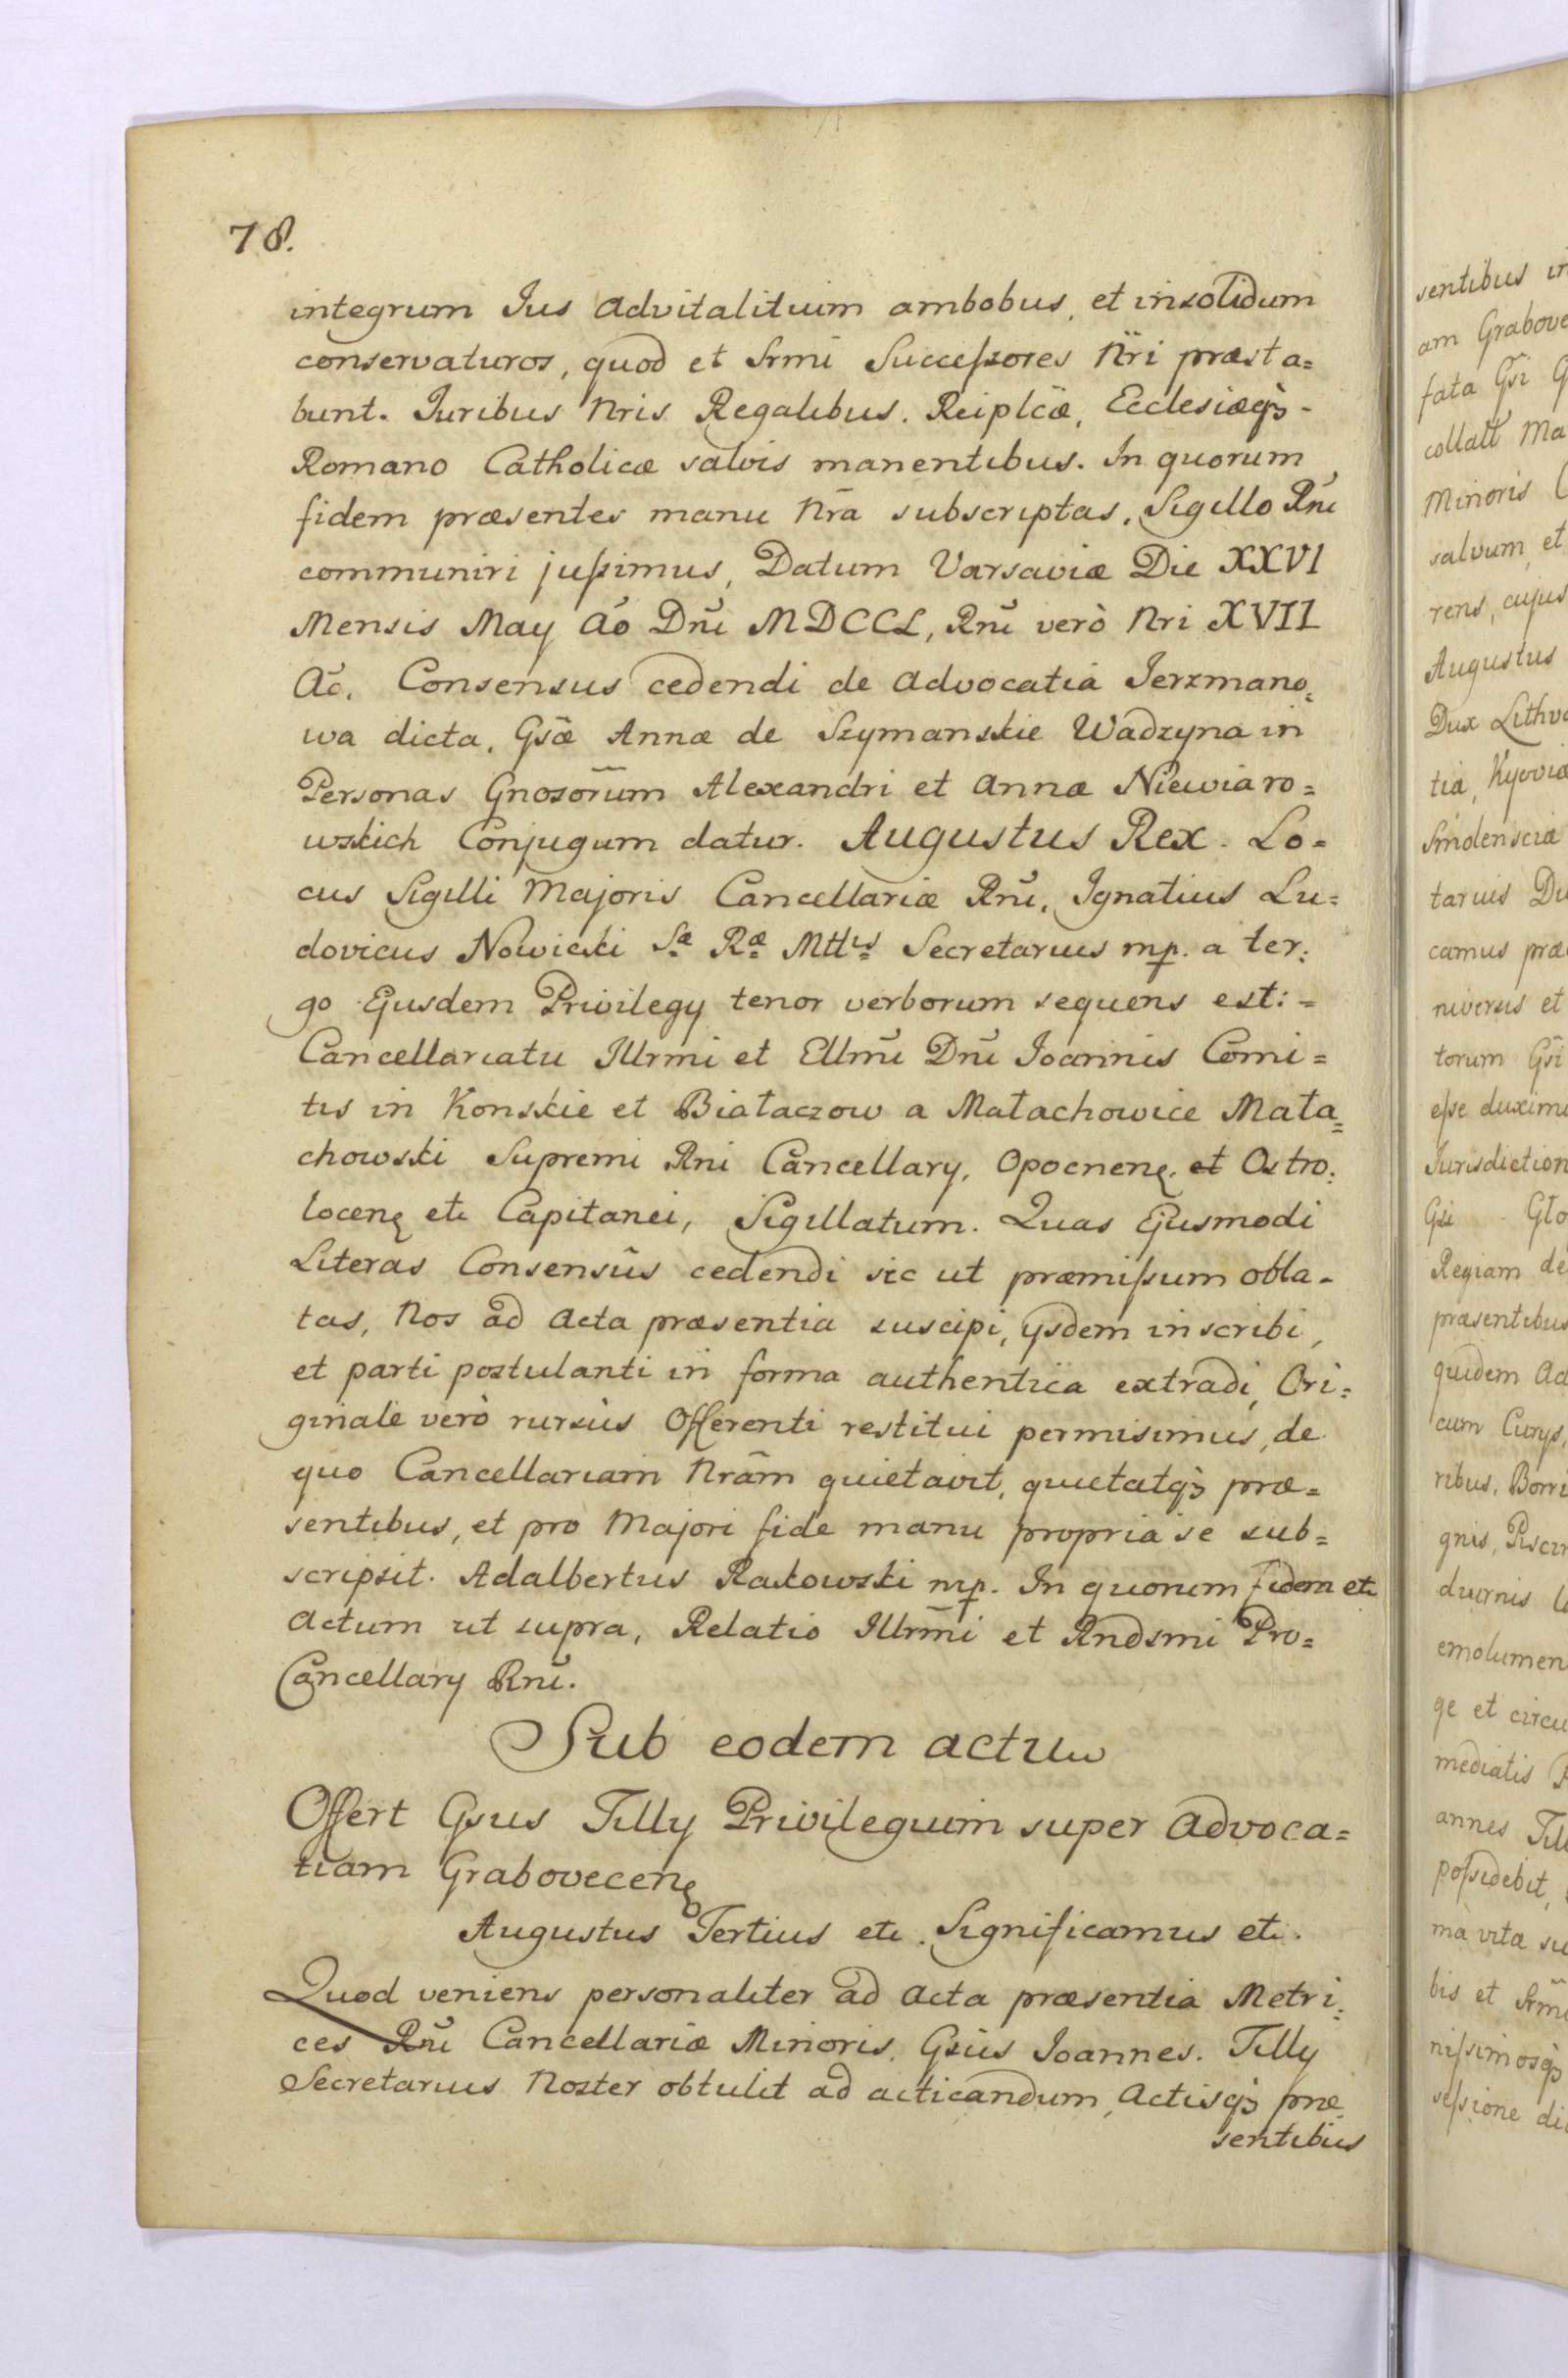 78.
integrum Jus advitalituim ambobus, et insolidum
conservaturos, quod et Srmi Succeſsores Nri præsta=
bunt. Juribus Nris Regalibus. Reiplcæ, Ecclesiæq̃ -
Romano Catholicæ salvis manentibus. In quorum
fidem præsentes manu Nrã subscriptas, Sigillo Rñi
communiri juſsimus, Datum Varsaviæ Die XXVI
Mensis May Aõ Dñi MDCCL, Rñi verò Nri XVII
Aõ. Consensus cedendi de advocatia Jerzmano=
wa dicta, Gsæ Annæ de Szymanskie Wadzyna in
Personas Gnosorum Alexandri et Annæ Niewiaro=
wskich Conjugum datur. Augustus Rex. Lo=
cus Sigilli Majoris Cancellariæ Rñi, Ignatius Lu=
dovicus Nowicki Sæ Ræ Mttis Secretarius mp. a ter:
go Ejusdem Privilegy tenor verborum sequens est: =
Cancellariatu Illrmi et Ellmi Dñi Joannis Comi=
tis in Konskie et Białaczow a Małachowice Mała=
chowski Supremi Rni Cancellary, Opocnenę. et Ostro:
locenę etc Capitanei, Sigillatum. Quas Ejusmodi
Literas Consensûs cedendi sic ut præmiſsum obla-
tas, Nos ad Acta præsentia suscipi, ysdem inscribi,
et parti postulanti in forma authentica extradi, Ori=
ginale verò rursùs Offerenti restitui permisimus, de
quo Cancellariam Nrãm quietavit, quietatq̃ præ=
sentibus, et pro Majori fide manu propria se sub=
scripsit. Adalbertus Rakowski mp. In quorum fidem etc
Actum ut supra, Relatio Illrmi et Rndsmi Pro=
Cancellary Rñi.
Sub eodem actu
Offert Gsus Tilly Privilegium super Advoca=
tiam Grabovecenę
Augustus Tertius etc. Significamus etc.
Quod veniens personaliter ad Acta præsentia Metri:
ces Rñi Cancellariæ Minoris, Gsùs Joannes. Tilly
Secretarius Noster obtulit ad acticandum, Actisq̃ præ
sentibus
sentibus in
am Grabove
fata Gsi G
collatt Ma
Minoris
salvum, et
rens, cujus
Augustus
Dux Lithva
tia, Kyoviæ
Smolensciæ
tarius Du
camus præ
niversis et
torum Gsi
eſse duximu
Jurisdiction
Gsi Glo
Regiam de
præsentibus
quidem Ad
cum Curys,
ribus, Borri
gnis, Piscin
emolumen
ge et circu
mediatis
annes Till
poſsidebit,
mã vitæ su
bis et Srmi
niſsimosq̃
seſsione di